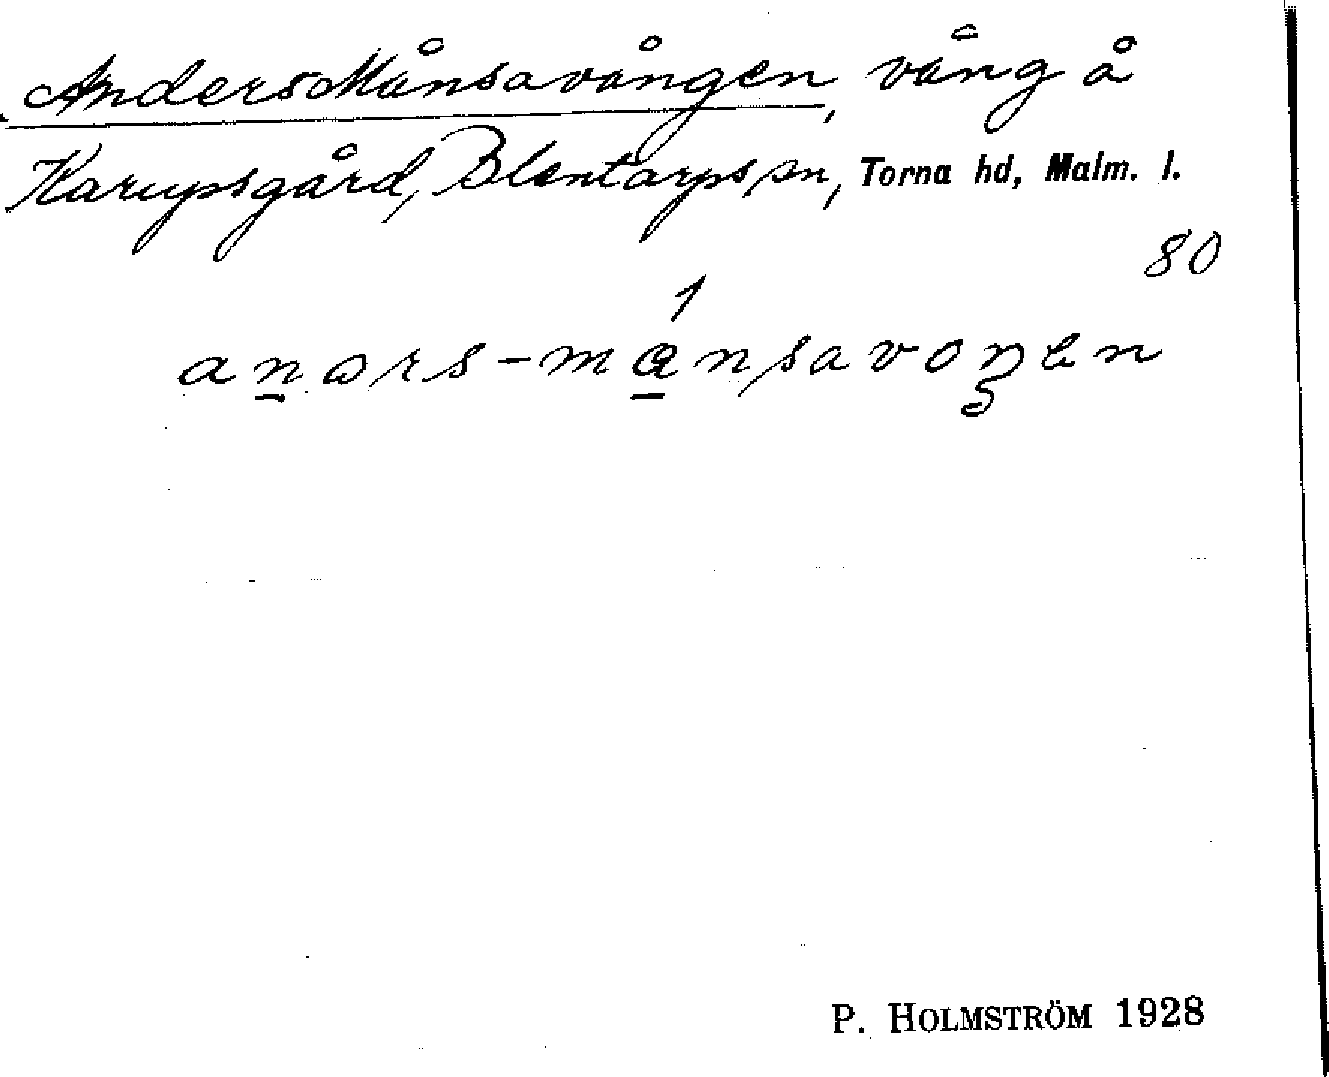 Anders Månsavången, vång å
Karupsgård, Blentarps sn, Torna hd, Malm. l.
80
1
anərs-månsavoŋen
P. HOLMSTRÖM 1928